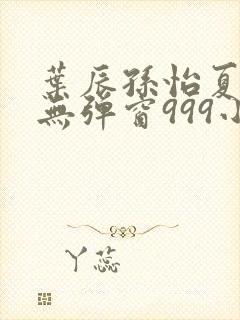 葉辰孫怡夏
無彈窗999小
丫蕊